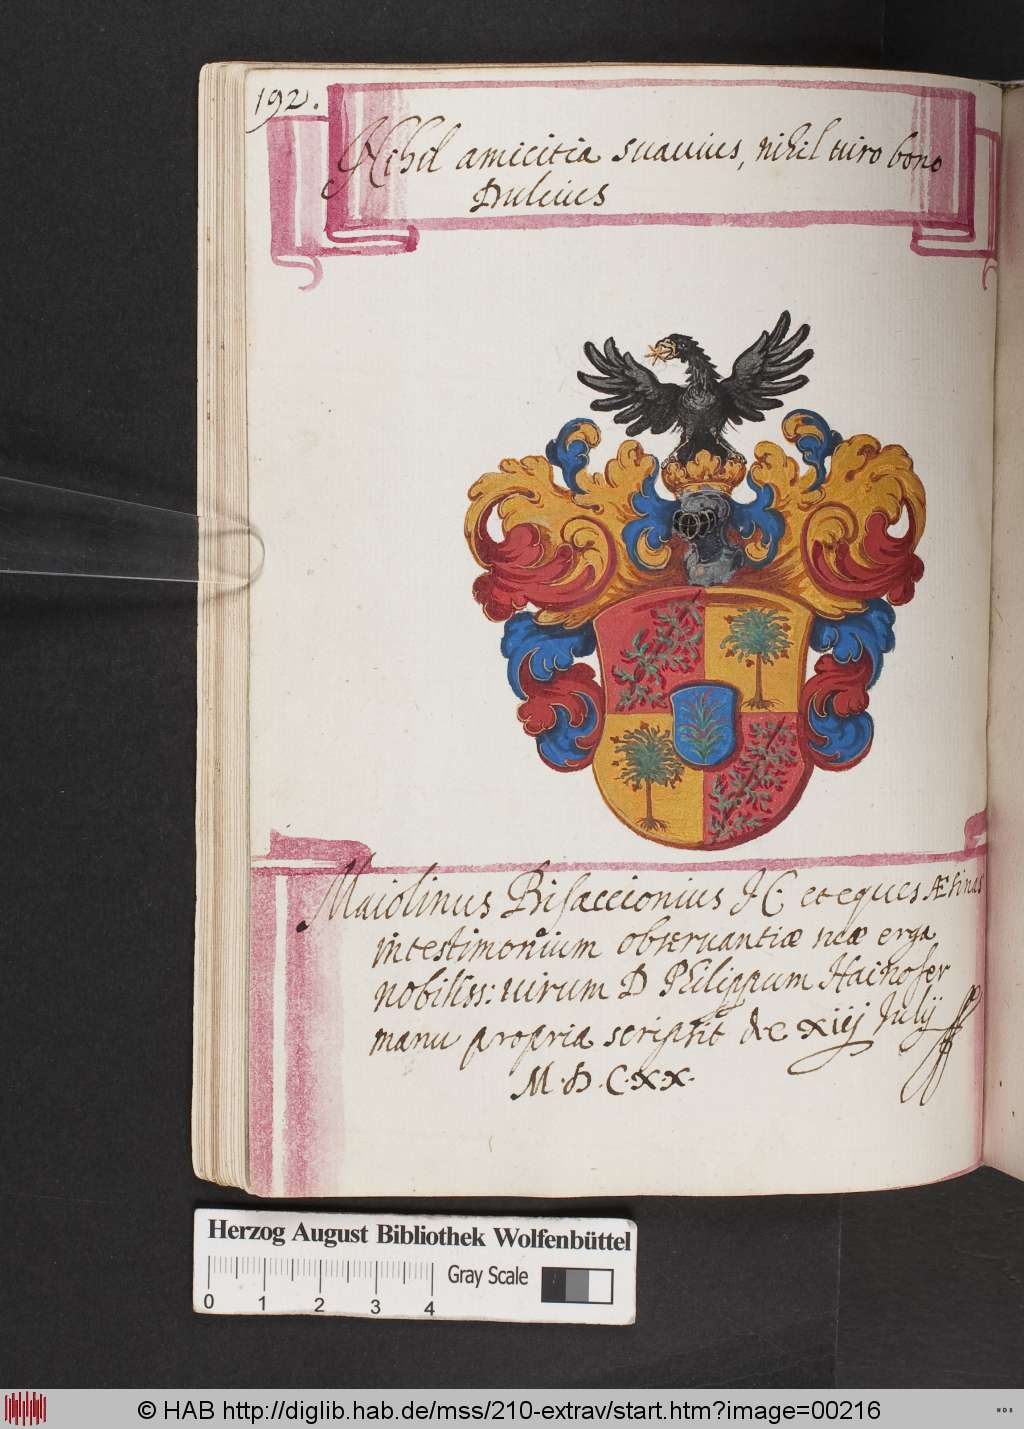 192.
Nihil amicitia suauius, nihil uiro bono
Dulcius
Maiolinus Bisaccionius JC: et eques Æsinas
in testimonium obseruantiæ meæ erga
nobiliss: uirum D Philippum Hainhofer
manu propria scripsit de xiij Julij
M.D.C.X.X.
Herzog August Bibliothek Wolfenbüttel
Gray Scale
0 1 2 3 4
© HAB http://diglib.hab.de/mss/210-extrav/start.htm?image=00216